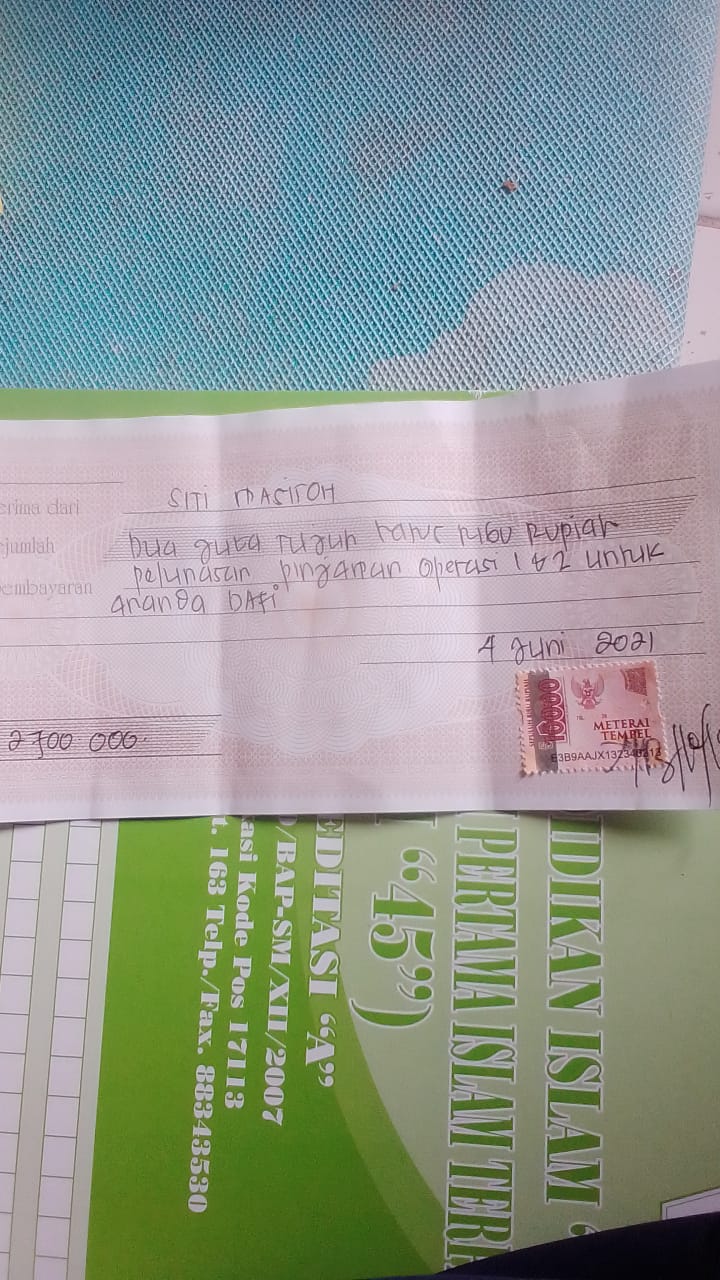 erima dari SITI MASITOH
jumlah Dua juta Tujuh Ratus Ribu Rupiah
embayaran pelunasan pinjaman operasi 1 & 2 untuk
Ananda DAFI
4 Juni 2021
2 700 000.
10000
METERAI
TEMPEL
E3B9AAJX132340212
DIDIKAN ISLAM "
PERTAMA ISLAM TER
"45")
EDITASI "A"
/BAP-SM/XII/2007
asi Kode Pos 17113
t. 163 Telp./Fax. 88343530